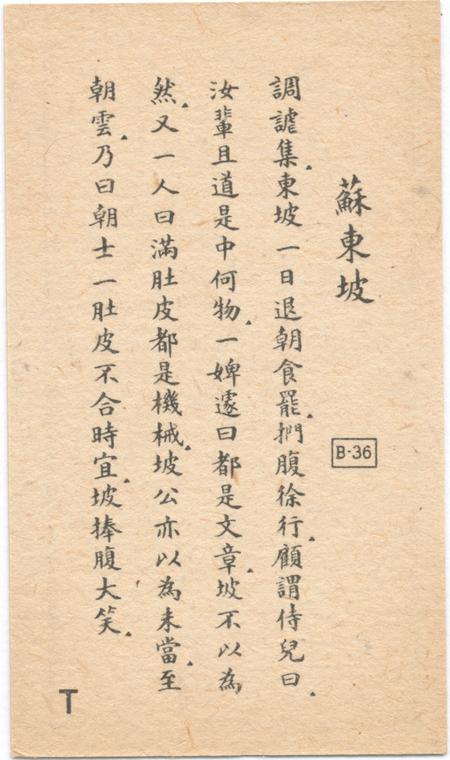 蘇東坡
B-36
調謔集.東坡一日退朝食罷.捫腹徐行.顧謂侍兒曰.
汝輩且道是中何物.一婢遽曰都是文章.坡不以為
然.又一人曰滿肚皮都是機械.坡公亦以為未當.至
朝雲.乃曰朝士一肚皮不合時宜.坡捧腹大笑.
T